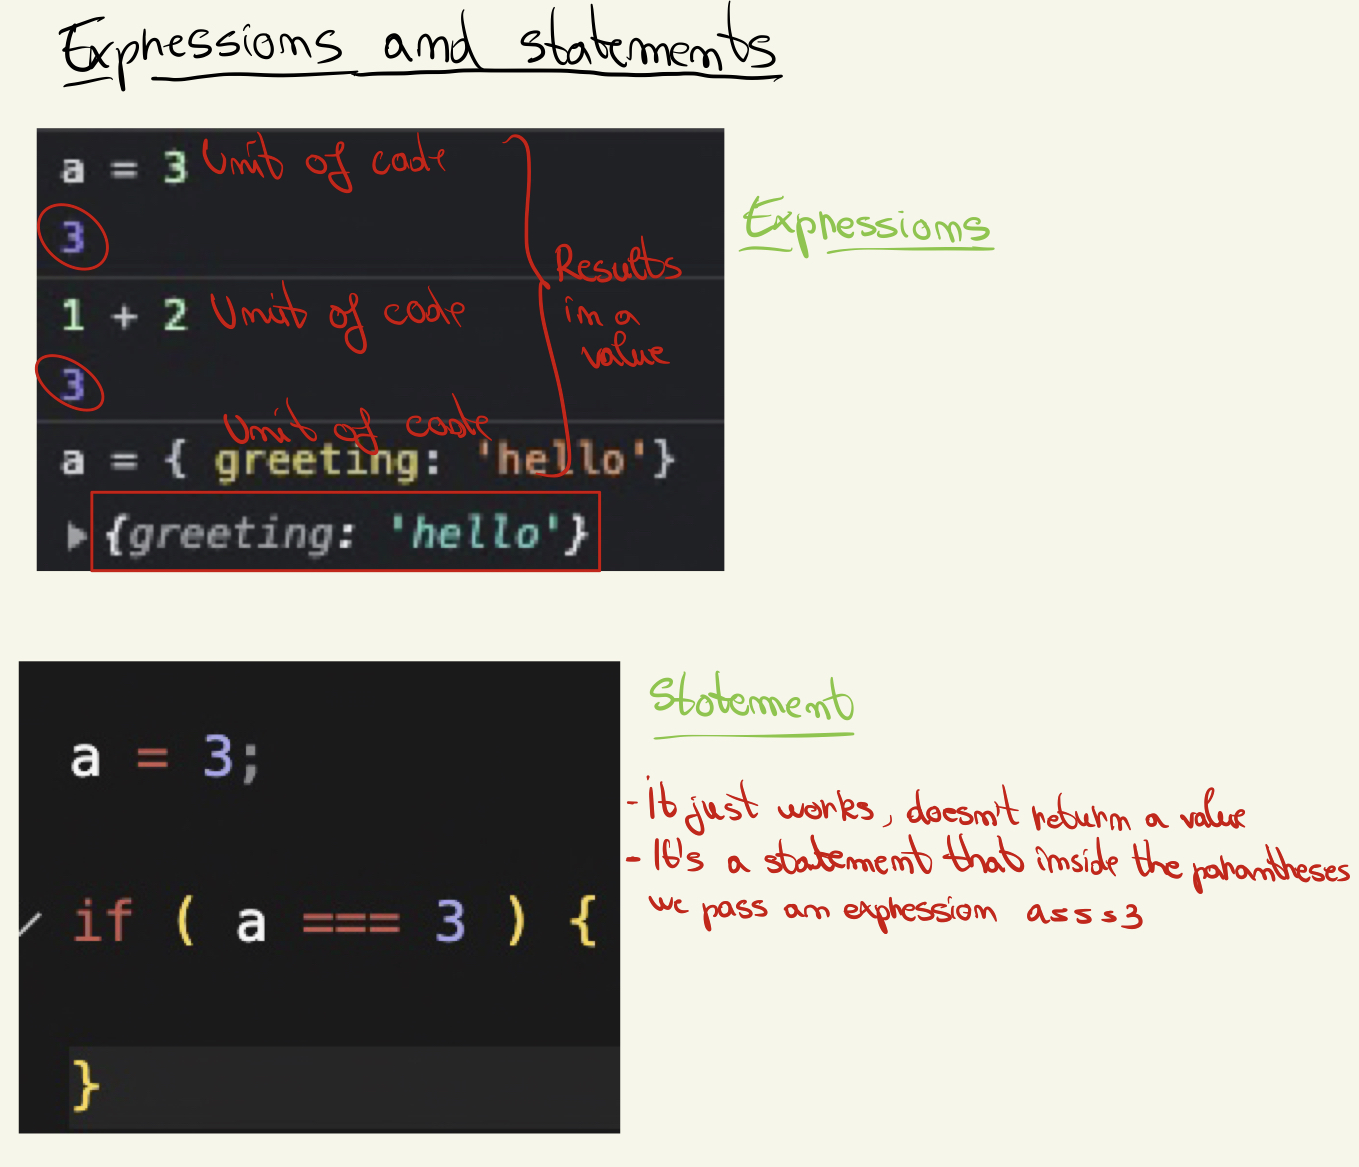 Expressions and statements
a = 3 Unit of code
3
1 + 2 Unit of code
3
Unit of code
a = { greeting: 'hello'}
▶ {greeting: 'hello'}
Results
in a
value
Expressions
a = 3;
if ( a === 3 ) {
}
Statement
- It just works, doesn't return a value
- It's a statement that inside the parantheses
we pass an expression a===3